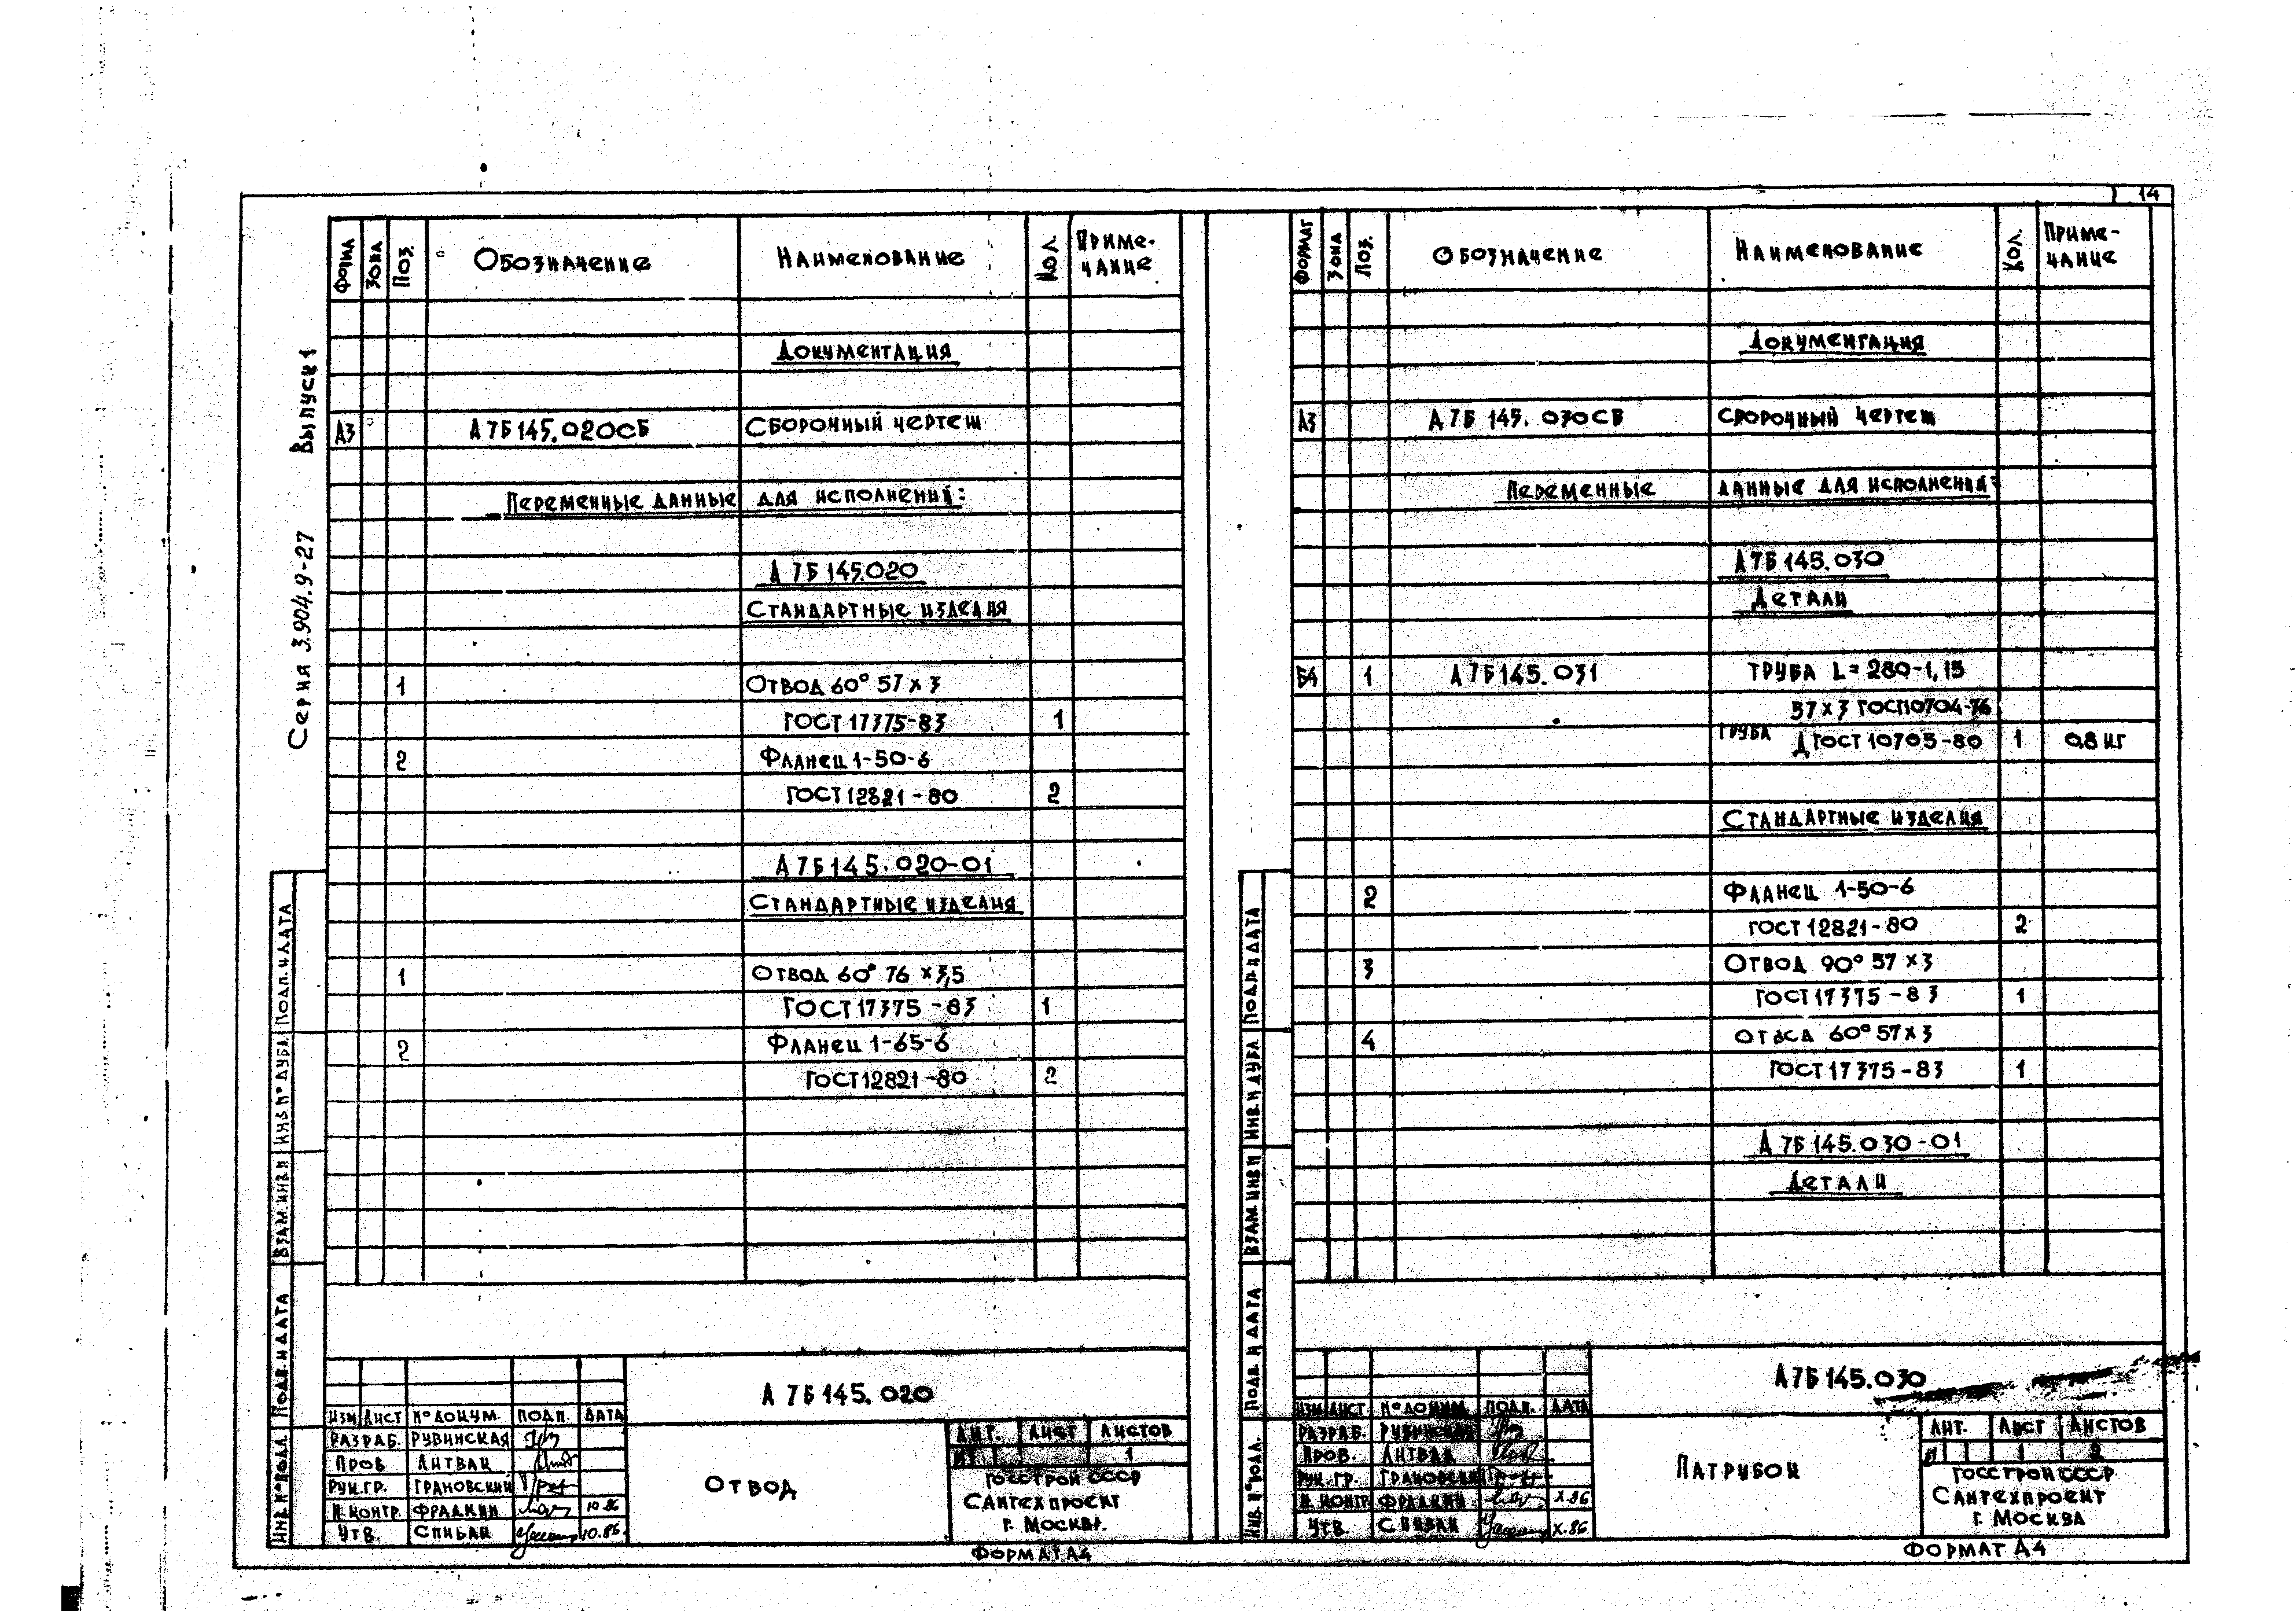 14
Серия 3.904.9-27 Выпуск 1
Формат Зона Поз. Обозначение Наименование Кол. Приме-
чание
Документация
А3 А7Б145.020СБ Сборочный чертеж
Переменные данные для исполнений:
А7Б145.020
Стандартные изделия
1 Отвод 60° 57×3
ГОСТ 17375-83 1
2 Фланец 1-50-6
ГОСТ 12821-80 2
А7Б145.020-01
Стандартные изделия
1 Отвод 60° 76×3,5
ГОСТ 17375-83 1
2 Фланец 1-65-6
ГОСТ 12821-80 2
Инв. № подл. Подп. и дата Взам. инв. № Инв. № дубл. Подп. и дата
А7Б145.020
Изм. Лист № докум. Подп. Дата
Разраб. Рувинская
Пров. Литвак
Рук. гр. Грановский
Н. контр. Фрадкин 10.86
Утв. Спивак 10.86
Отвод
Лит. Лист Листов
1
Госстрой СССР
Сантехпроект
г. Москва.
Формат А4
Формат Зона Поз. Обозначение Наименование Кол. Приме-
чание
Документация
А3 А7Б145.030СБ Сборочный чертеж
Переменные данные для исполнений:
А7Б145.030
Детали
Б4 1 А7Б145.031 Труба L=280-1,15
57×3 ГОСТ 10704-76
Труба Д ГОСТ 10705-80 1 0,8 кг
Стандартные изделия
2 Фланец 1-50-6
ГОСТ 12821-80 2
3 Отвод 90° 57×3
ГОСТ 17375-83 1
4 Отвод 60° 57×3
ГОСТ 17375-83 1
А7Б145.030-01
Детали
Инв. № подл. Подп. и дата Взам. инв. № Инв. № дубл. Подп. и дата
А7Б145.030
Изм. Лист № докум. Подп. Дата
Разраб. Рувинская
Пров. Литвак
Рук. гр. Грановский
Н. контр. Фрадкин X.86
Утв. Спивак X.86
Патрубок
Лит. Лист Листов
И 1 2
Госстрой СССР
Сантехпроект
г. Москва
Формат А4